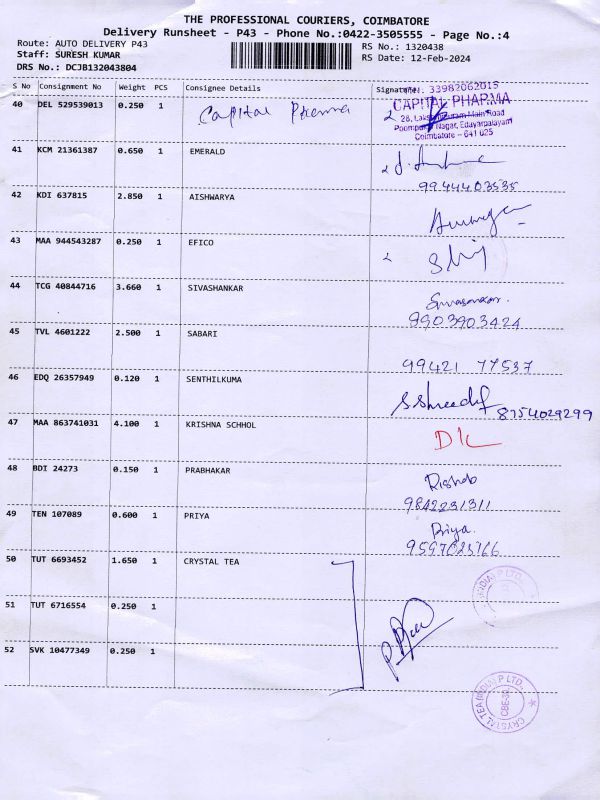 THE PROFESSIONAL COURIERS, COIMBATORE
Delivery Runsheet - P43 - Phone No.:0422-3505555 - Page No.:4
Route: AUTO DELIVERY P43
Staff: SURESH KUMAR
DRS No.: DCJB132043804
RS No.: 1320438
RS Date: 12-Feb-2024
S No Consignment No Weight PCS Consignee Details Signature
40 DEL 529539013 0.250 1 Capital Pharma
33982062015
CAPITAL PHARMA
Main Road
Nagar, Edayarpalayam
Coimbatore - 641 025
41 KCM 21361387 0.650 1 EMERALD
9944403535
42 KDI 637815 2.850 1 AISHWARYA
43 MAA 944543287 0.250 1 EFICO
44 TCG 40844716 3.660 1 SIVASHANKAR
9903903424
45 TVL 4601222 2.500 1 SABARI
99421 77537
46 EDQ 26357949 0.120 1 SENTHILKUMA
8754029299
47 MAA 863741031 4.100 1 KRISHNA SCHHOL
48 BDI 24273 0.150 1 PRABHAKAR
Rishab
9842231311
49 TEN 107089 0.600 1 PRIYA
Priya
50 TUT 6693452 1.650 1 CRYSTAL TEA
51 TUT 6716554 0.250 1
52 SVK 10477349 0.250 1
CRYSTAL TEA (INDIA) P LTD.